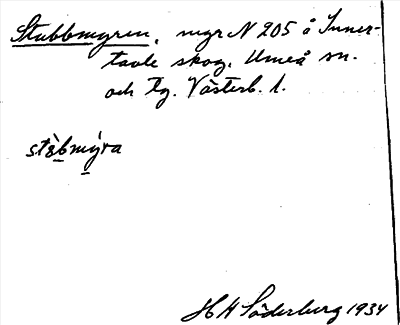 Stubbmyren, myr N 205 å Inner-
tavle skog, Umeå sn.
och tg. Västerb. l.
stèbmýra
HH Söderburg 1934